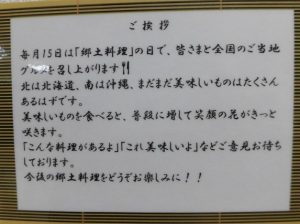 ご挨拶
毎月15日は「郷土料理」の日で、皆さまと全国のご当地
グルメを召し上がります🍴
北は北海道、南は沖縄、まだまだ美味しいものはたくさん
あるはずです。
美味しいものを食べると、普段に増して笑顔の花がきっと
咲きます。
「こんな料理があるよ」「これ美味しいよ」などご意見お待ち
しております。
今後の郷土料理をどうぞお楽しみに！！